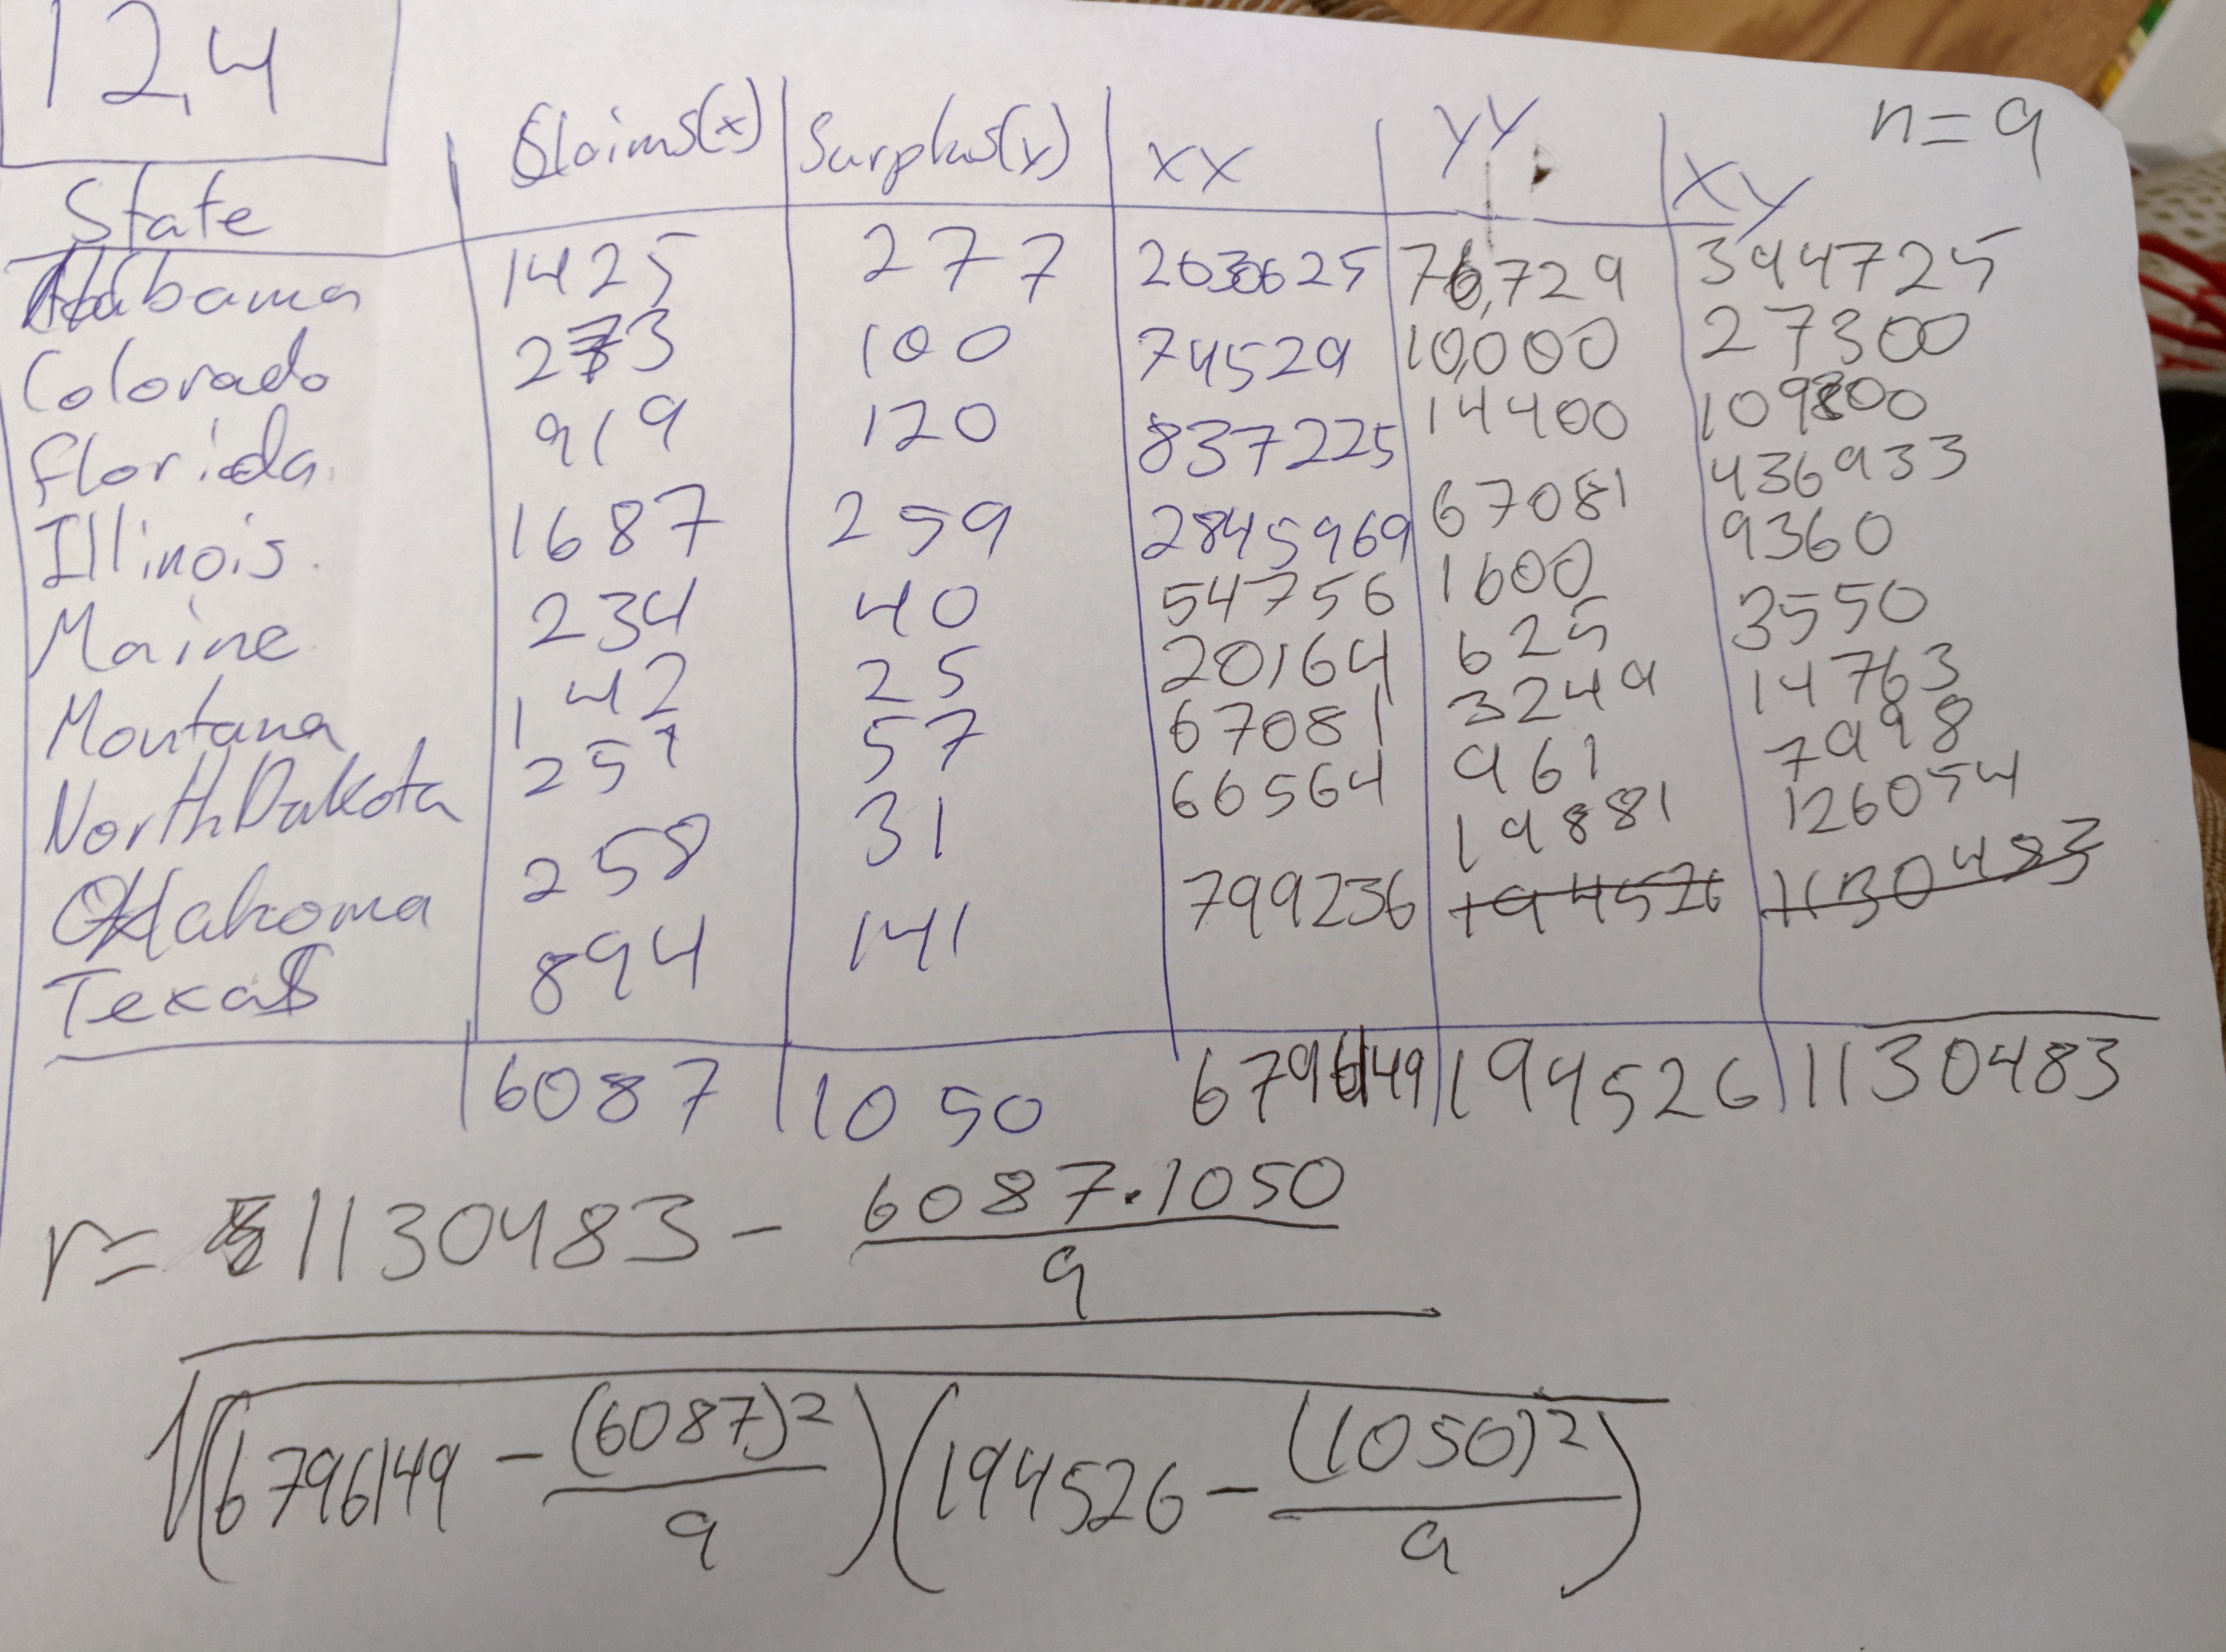 12.4
n=9
State Claims(x) Surplus(y) XX YY XY
Alabama 1425 277 2030625 76,729 394725
Colorado 273 100 74529 10,000 27300
Florida 919 120 837225 14400 109800
Illinois 1687 259 2845969 67081 436933
Maine 234 40 54756 1600 9360
Montana 142 25 20164 625 3550
North Dakota 259 57 67081 3249 14763
Oklahoma 258 31 66564 961 7998
Texas 894 141 799236 19881 126054
194526 1130483
6087 1050 6796149 194526 1130483
r= 1130483 - 6087·1050
9
√(6796149 - (6087)2 / 9)(194526 - (1050)2 / 9)